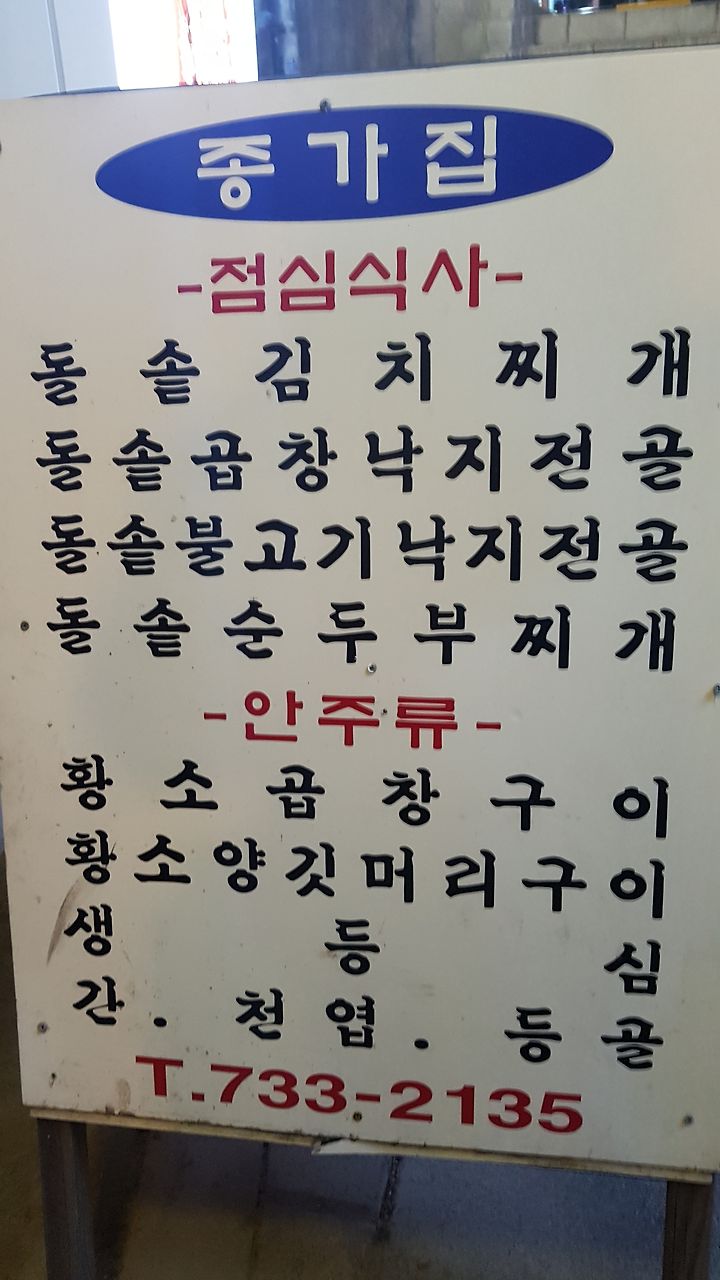 종가집
-점심식사-
돌솥김치찌개
돌솥곱창낙지전골
돌솥불고기낙지전골
돌솥순두부찌개
-안주류-
황소곱창구이
황소양깃머리구이
생등심
간.천엽.등골
T.733-2135